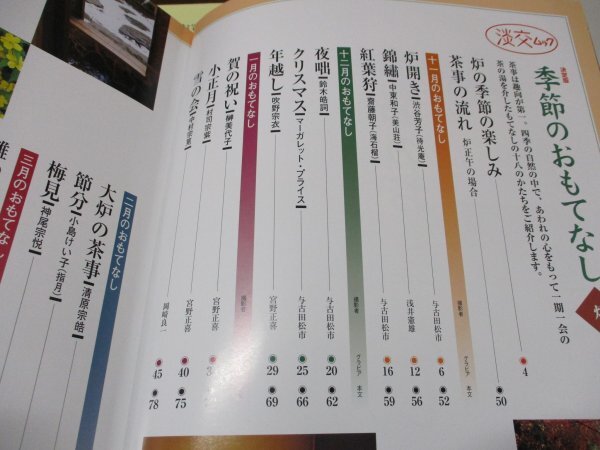 淡交ムック
決定版
季節のおもてなし
茶事は趣向が第一。四季の自然の中で、あわれの心をもって一期一会の
茶の湯を介したもてなしの十八のかたちをご紹介します。
炉の季節の楽しみ 4
茶事の流れ 炉正午の場合 50
十一月のおもてなし 撮影者 グラビア 本文
炉開き【渋谷芳子(待光庵)】 与古田松市 6 52
錦繡【中東和子(美山荘)】 浅井憲雄 12 56
紅葉狩【齋藤朝子(海石榴)】 与古田松市 16 59
十二月のおもてなし 撮影者 グラビア 本文
夜咄【鈴木皓詞】 与古田松市 20 62
クリスマス【マーガレット・プライス】 与古田松市 25 66
年越し【吹野宗衣】 宮野正喜 29 69
一月のおもてなし 撮影者
賀の祝い【榊美代子】 宮野正喜
小正月【杜司宗宴】 宮野正喜 40 75
雪の会【中村宗葉】 岡崎良一 45 78
二月のおもてなし
大炉の茶事【清原宗皓】
節分【小島けい子(指月)】
梅見【神尾宗悦】
三月のおもてなし